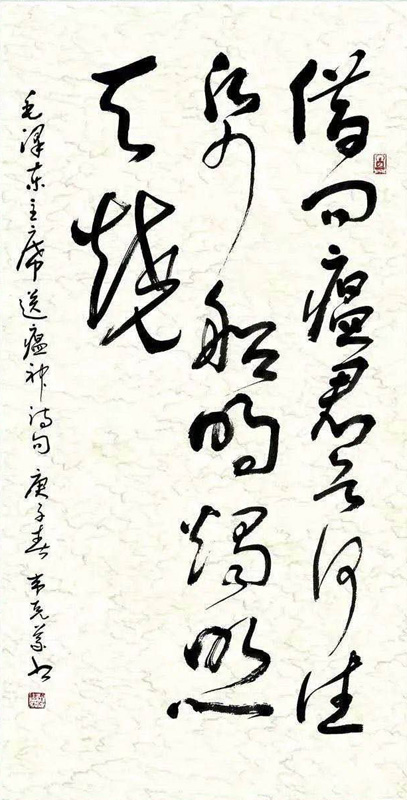 借问瘟君欲何往
纸船明燭照
天烧
毛泽东主席送瘟神诗句 庚子春 韦克义书